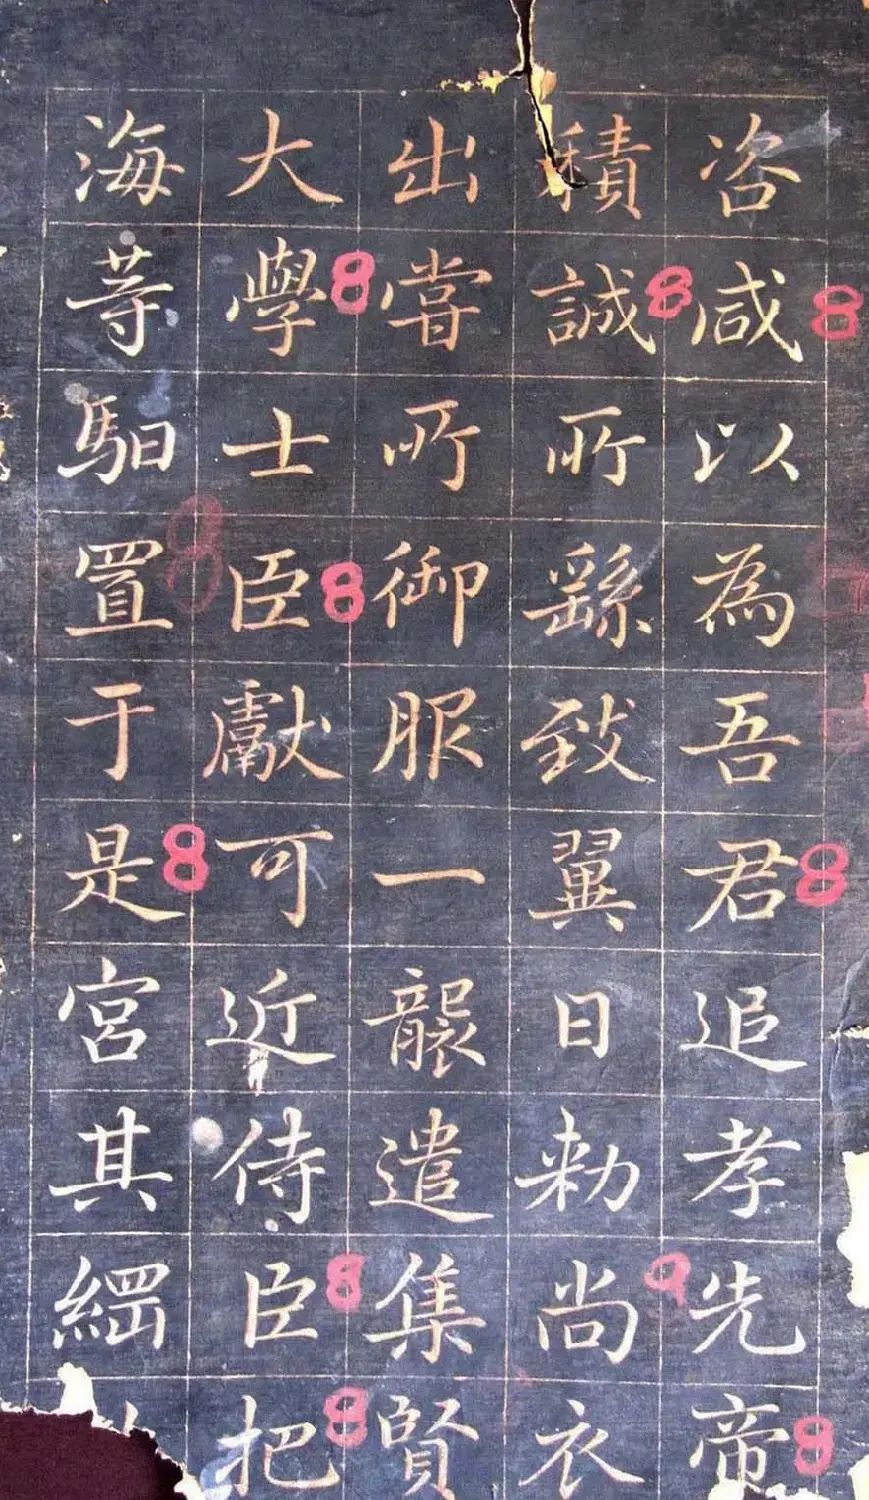 咨咸以為吾君追孝先帝
積誠所繇致翼日勑尚衣
出嘗所御服一襲遣集賢
大學士臣獻可近侍臣把
海等馹置于是宮其綱